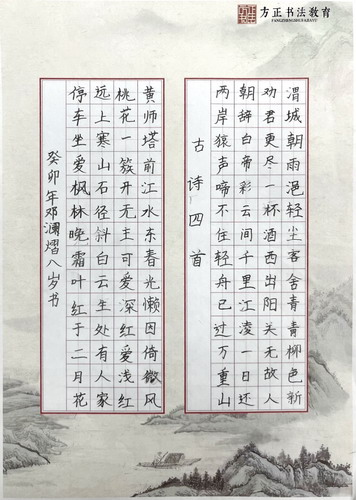 方正书法教育
渭城朝雨浥轻尘客舍青青柳色新
劝君更尽一杯酒西出阳关无故人
朝辞白帝彩云间千里江凌一日还
两岸猿声啼不住轻舟已过万重山
古诗四首
黄师塔前江水东春光懒因倚微风
桃花一簇开无主可爱深红爱浅红
远上寒山石径斜白云生处有人家
停车坐爱枫林晚霜叶红于二月花
癸卯年邓澜熠八岁书